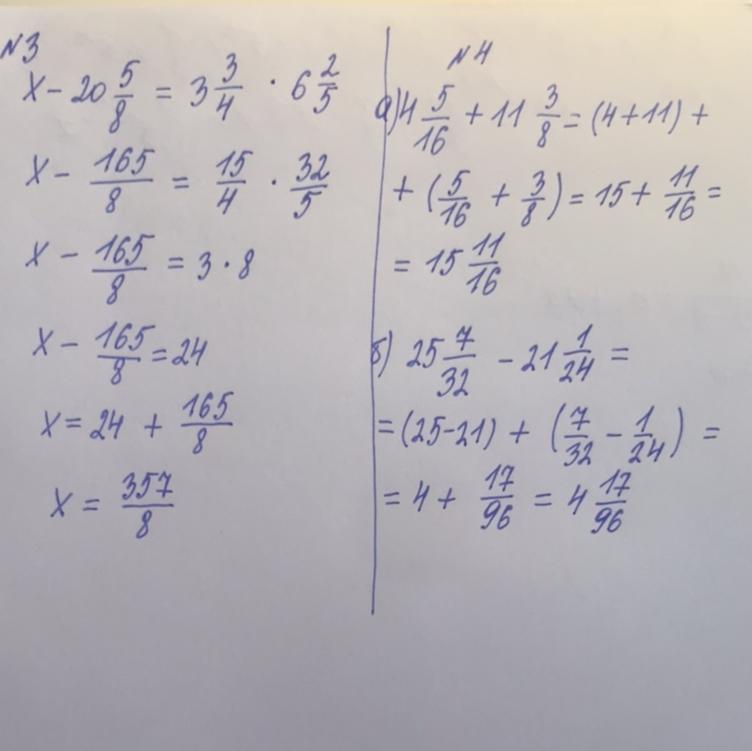 №3
x - 20 5/8 = 3 3/4 · 6 2/5
x - 165/8 = 15/4 · 32/5
x - 165/8 = 3 · 8
x - 165/8 = 24
x = 24 + 165/8
x = 357/8
№4
а) 4 5/16 + 11 3/8 = (4+11) +
+ (5/16 + 3/8) = 15 + 11/16 =
= 15 11/16
б) 25 7/32 - 21 1/24 =
= (25-21) + (7/32 - 1/24) =
= 4 + 17/96 = 4 17/96